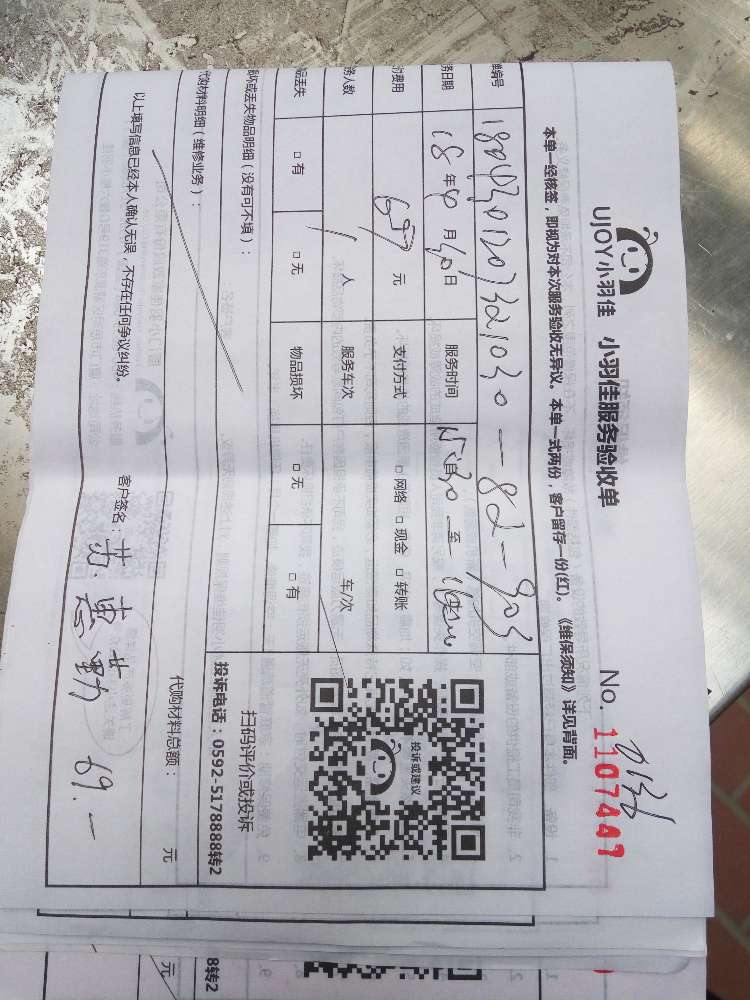 UJOY小羽佳 小羽佳服务验收单
No. 1107447
本单一经核签，即视为对本次服务验收无异议。本单一式两份，客户留存一份(红)。《维保须知》详见背面。
编号
务日期 18年4月30日 服务时间 至
费用 69 元 支付方式 □ 网络 □ 现金 □ 转账
务人数 1 人 服务车次 车/次
品丢失 □ 有 □ 无 物品损坏 □ 无 □ 有
损坏或丢失物品明细（没有可不填）：
投诉或建议
扫码评价或投诉
投诉电话：0592-5178888转2
代购材料明细（维修业务）：
代购材料总额： 元
以上填写信息已经本人确认无误，不存在任何争议纠纷。
客户签名： 69.—
8转2
元